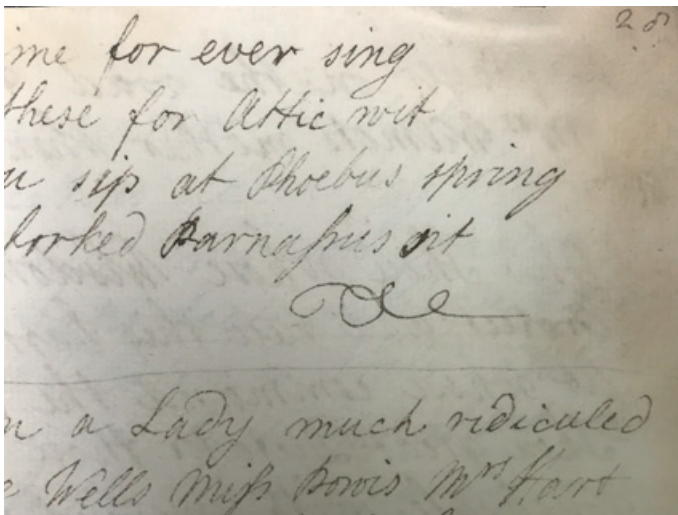 28
ime for ever sing
these for Attic wit
u sip at Phoebus spring
forked Parnaſsus sit
n a Lady much ridiculed
e Wells Miſs Powis Mrs Hart